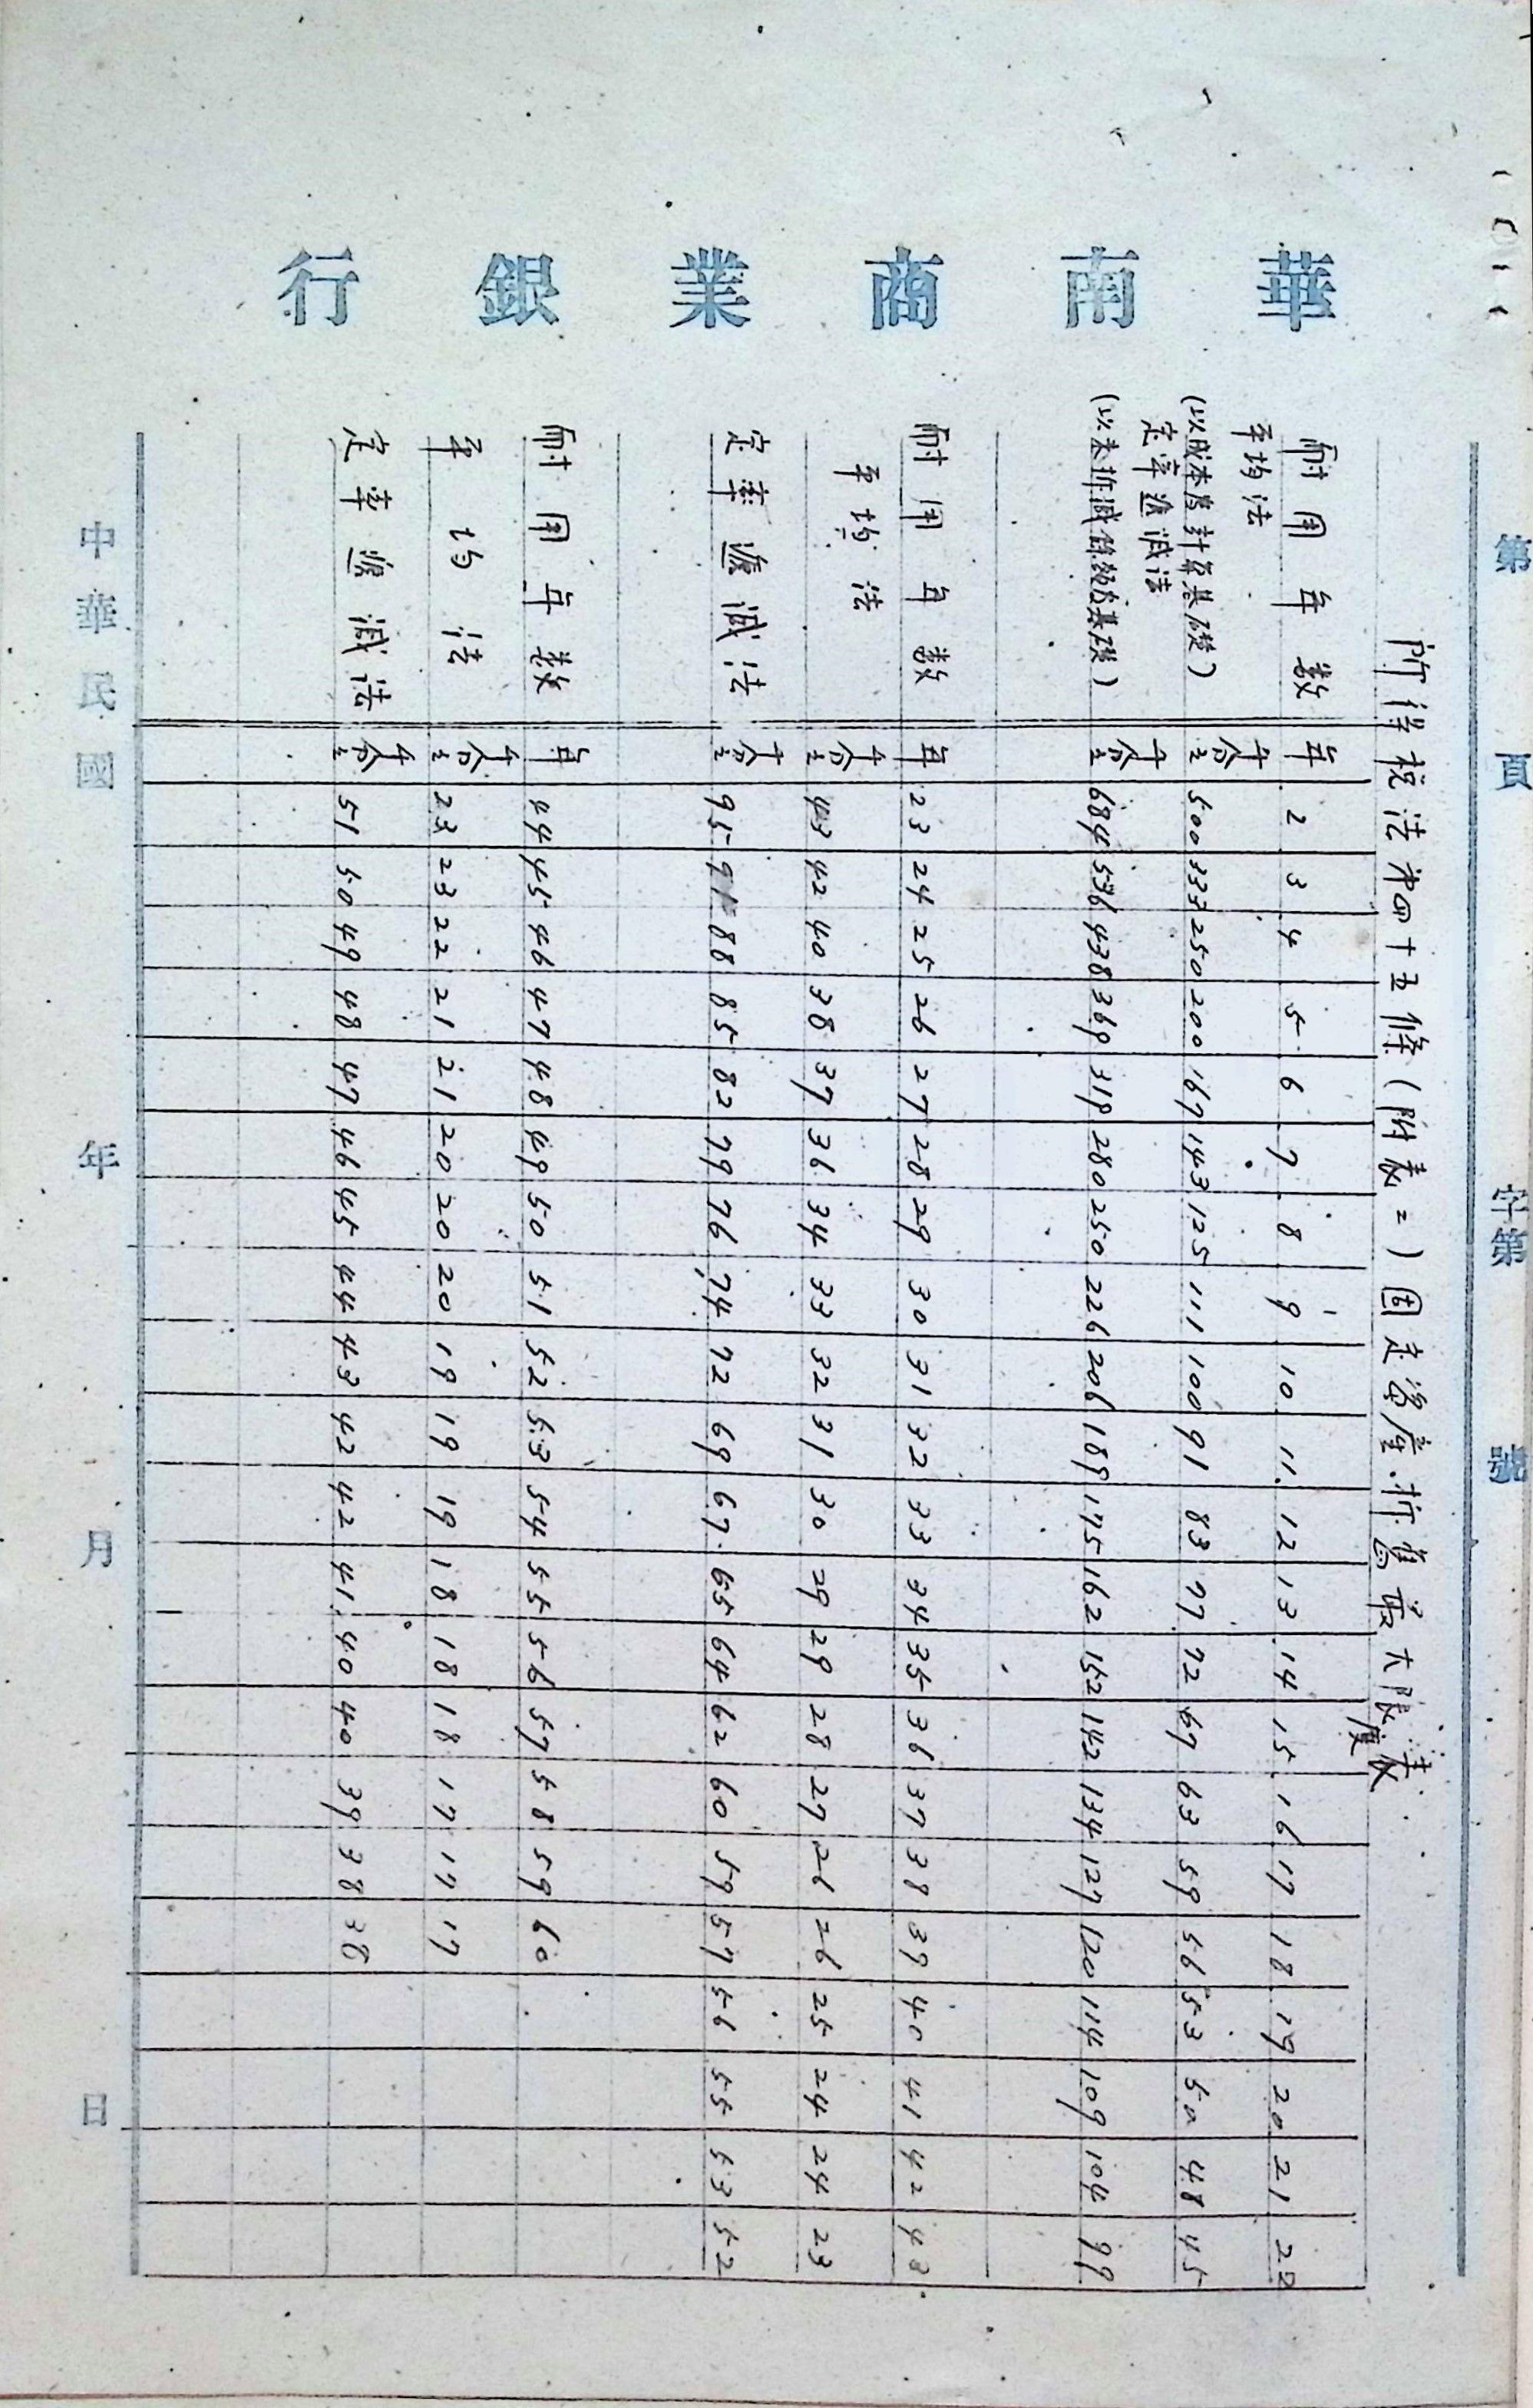 華南商業銀行
第 頁 字第 號
所得稅法第四十五條(附表二)固定資產折舊最大限度表
耐用年数 年 2 3 4 5 6 7 8 9 10 11 12 13 14 15 16 17 18 19 20 21 22
平均法
(以成本為計算基礎) 千分之 500 333 250 200 167 143 125 111 100 91 83 77 72 67 63 59 56 53 50 48 45
定率遞減法
(以未折減餘額為基礎) 千分之 684 536 438 369 319 280 250 226 206 189 175 162 152 142 134 127 120 114 109 104 99
耐用年数 年 23 24 25 26 27 28 29 30 31 32 33 34 35 36 37 38 39 40 41 42 43
平均法 千分之 43 42 40 38 37 36 34 33 32 31 30 29 29 28 27 26 26 25 24 24 23
定率遞減法 千分之 95 91 88 85 82 79 76 74 72 69 67 65 64 62 60 59 57 56 55 53 52
耐用年数 年 44 45 46 47 48 49 50 51 52 53 54 55 56 57 58 59 60
平均法 千分之 23 23 22 21 21 20 20 20 19 19 19 18 18 18 17 17 17
定率遞減法 千分之 51 50 49 48 47 46 45 44 43 42 42 41 40 40 39 38 38
中華民國 年 月 日